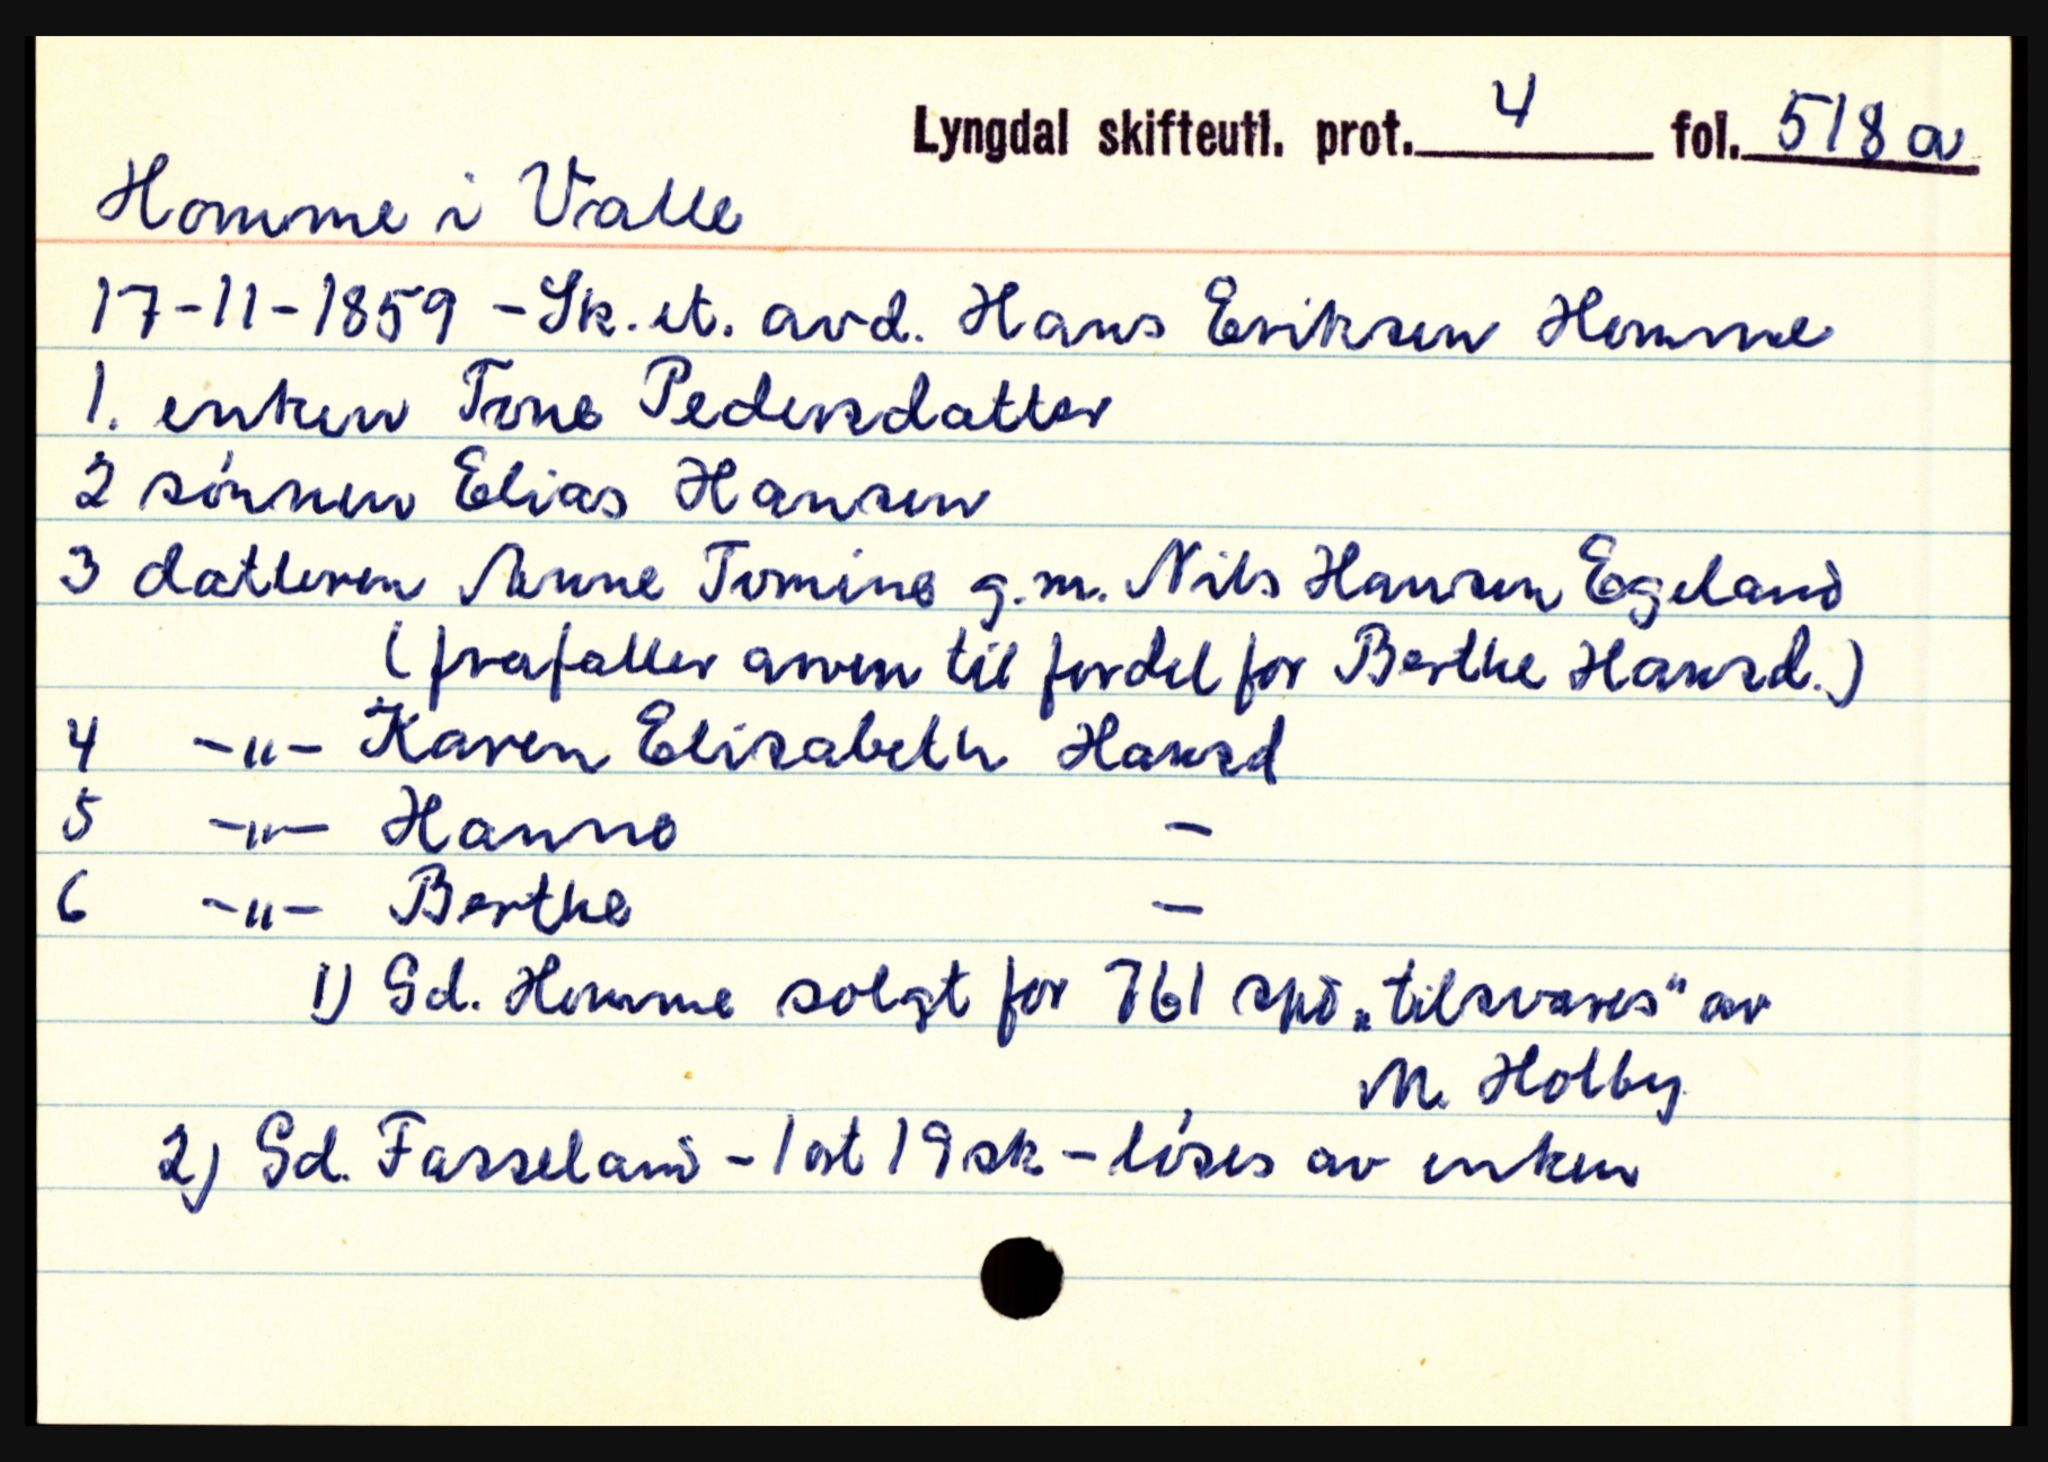 Lyngdal skifteutl. prot. 4 fol. 518 a
Homme i Valle
17-11-1859 - Sk. et. avd. Hans Eriksen Homme
1. enken Tone Pedersdatter
2 sönnen Elias Hansen
3 datteren Anne Tomine g.m. Nils Hansen Egeland
(frafaller arven til fordel for Berthe Hansd.)
4 -"- Karen Elisabeth Hansd
5 -"- Hanne -
6 -"- Berthe -
1) Gd. Homme solgt for 761 spd „tilsvares" av
M. Holby
2) Gd. Fasseland - 1 ort 19 sk - löses av enken